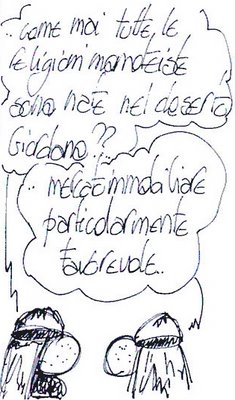 ..come mai tutte, le
religioni monoteiste
sono nate nel deserto
Giordano??
.. mercato immobiliare
particolarmente
favorevole..